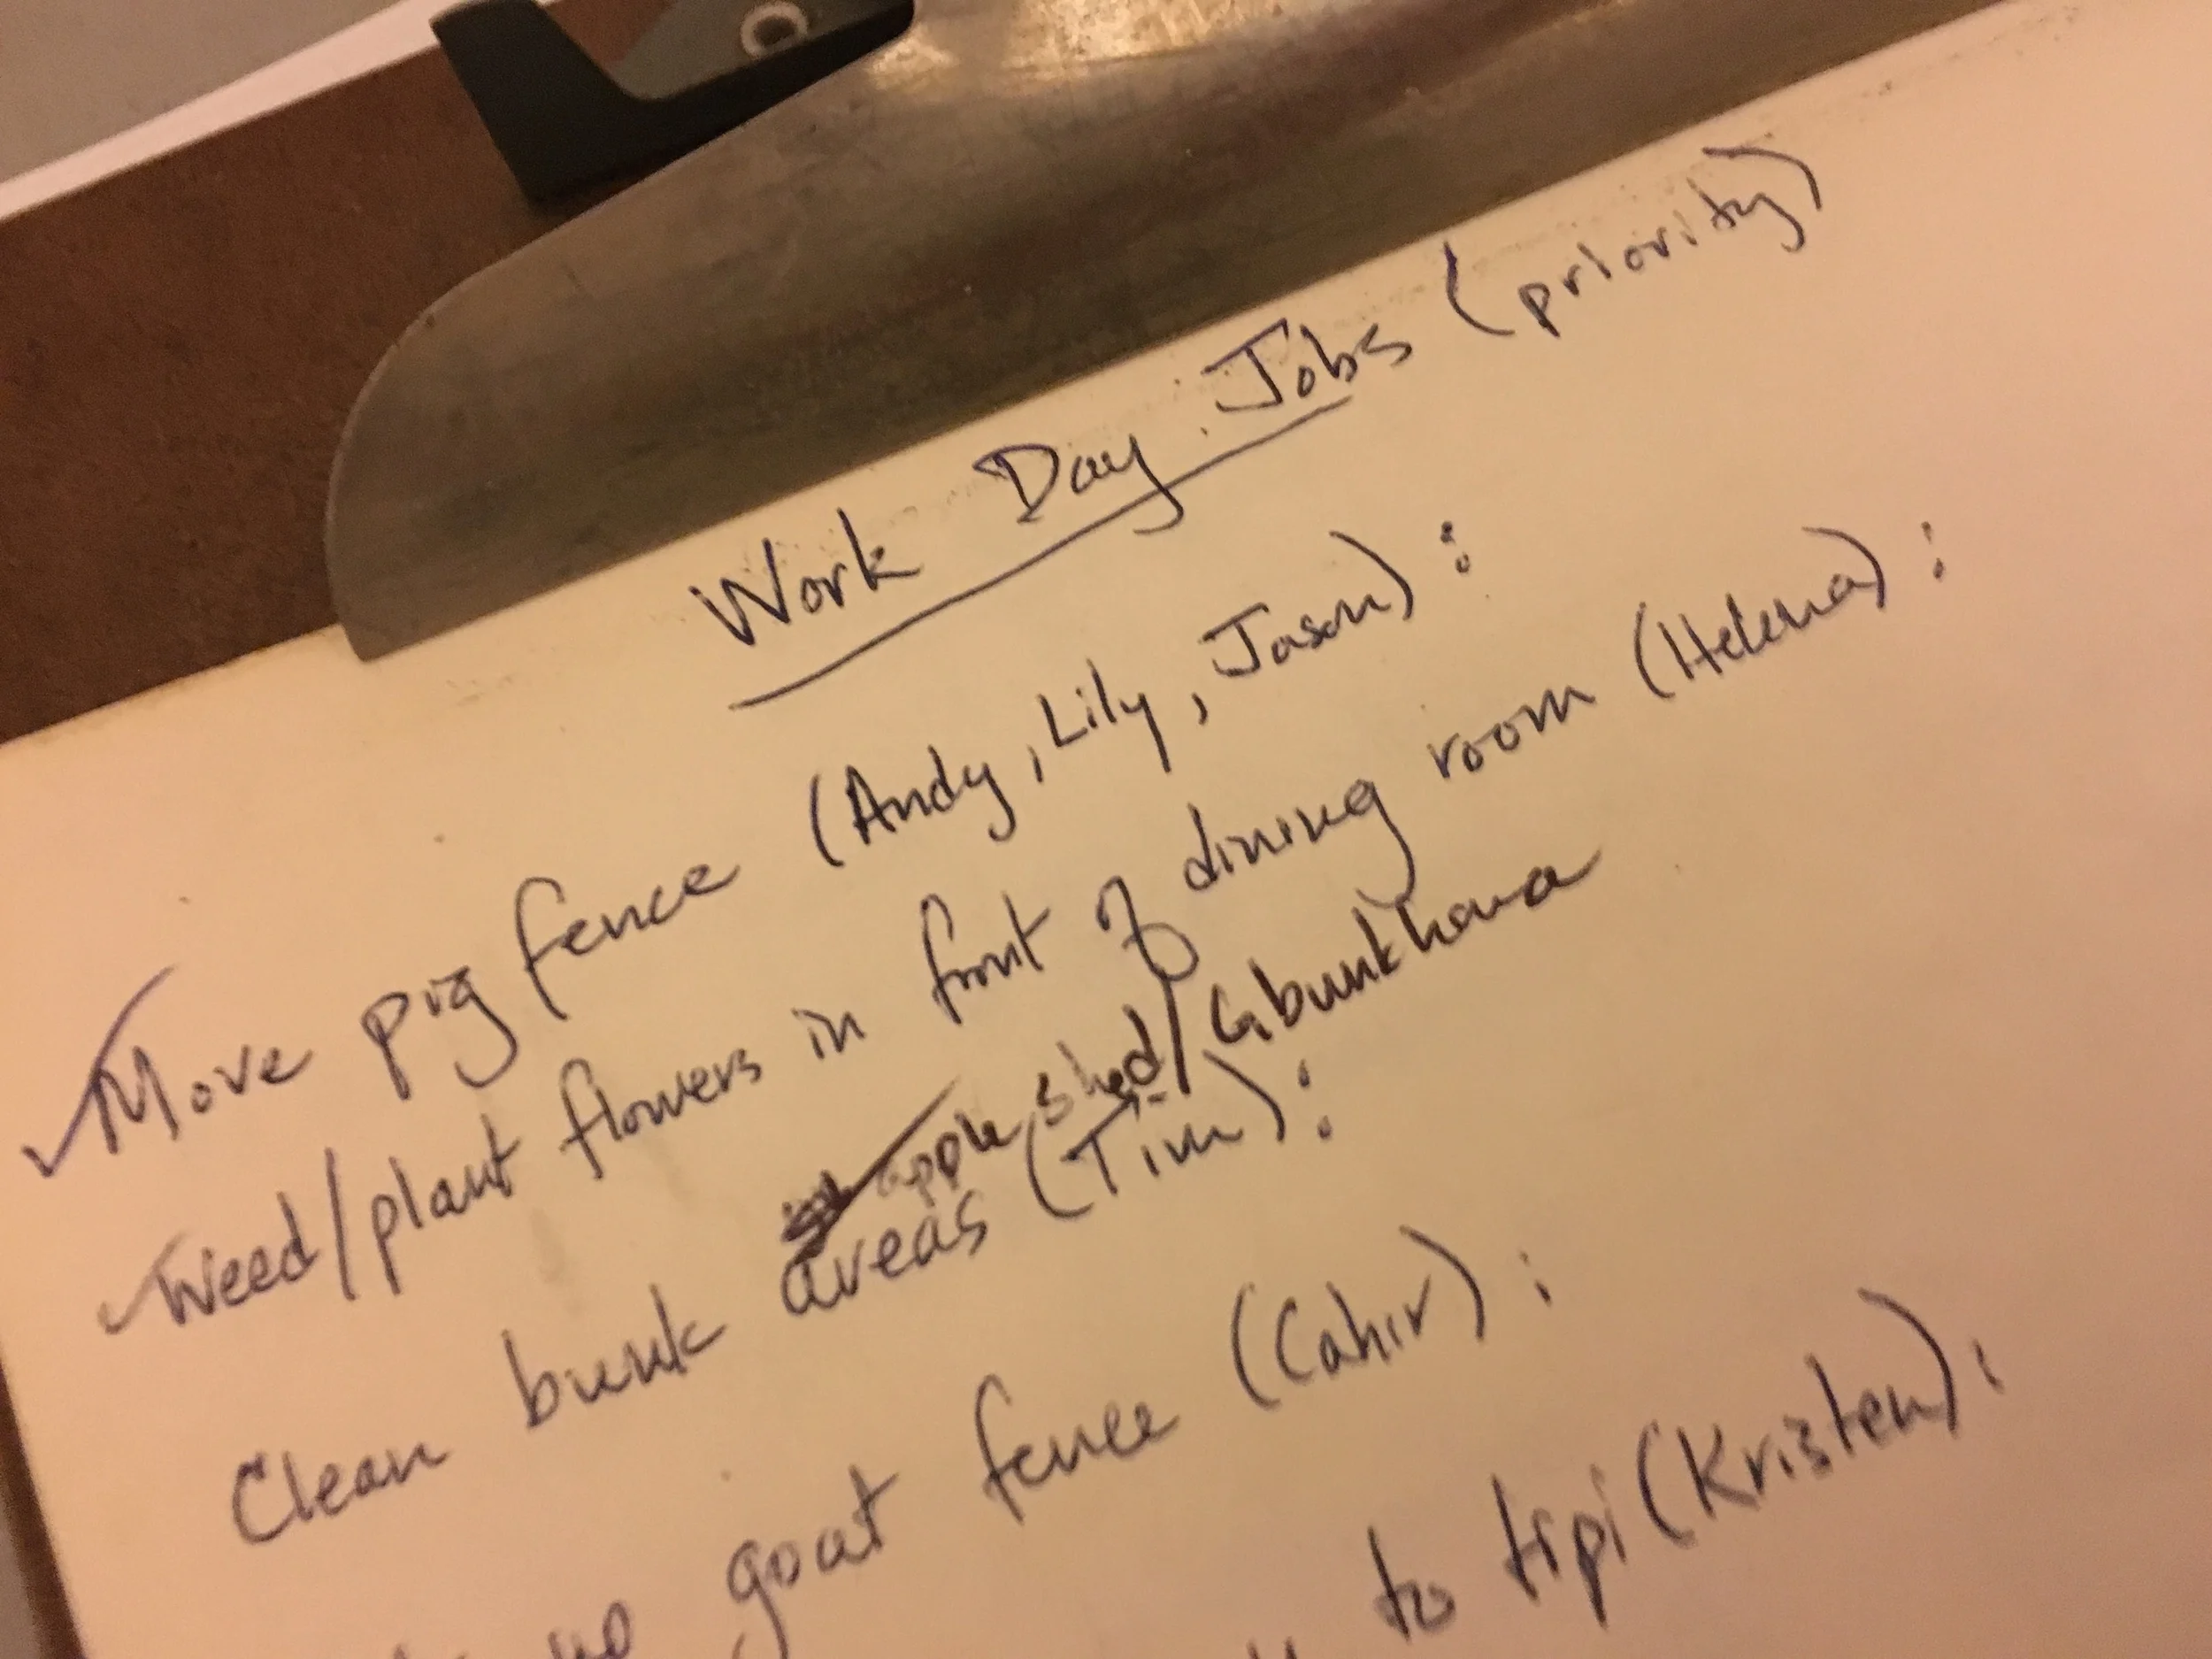 Work Day Jobs (priority)
Move pig fence (Andy, Lily, Jason):
Weed/plant flowers in front of dining room (Helena):
apple shed/
Clean bunk areas (Tim):
goat fence (Cahir):
to tipi (Kristen):